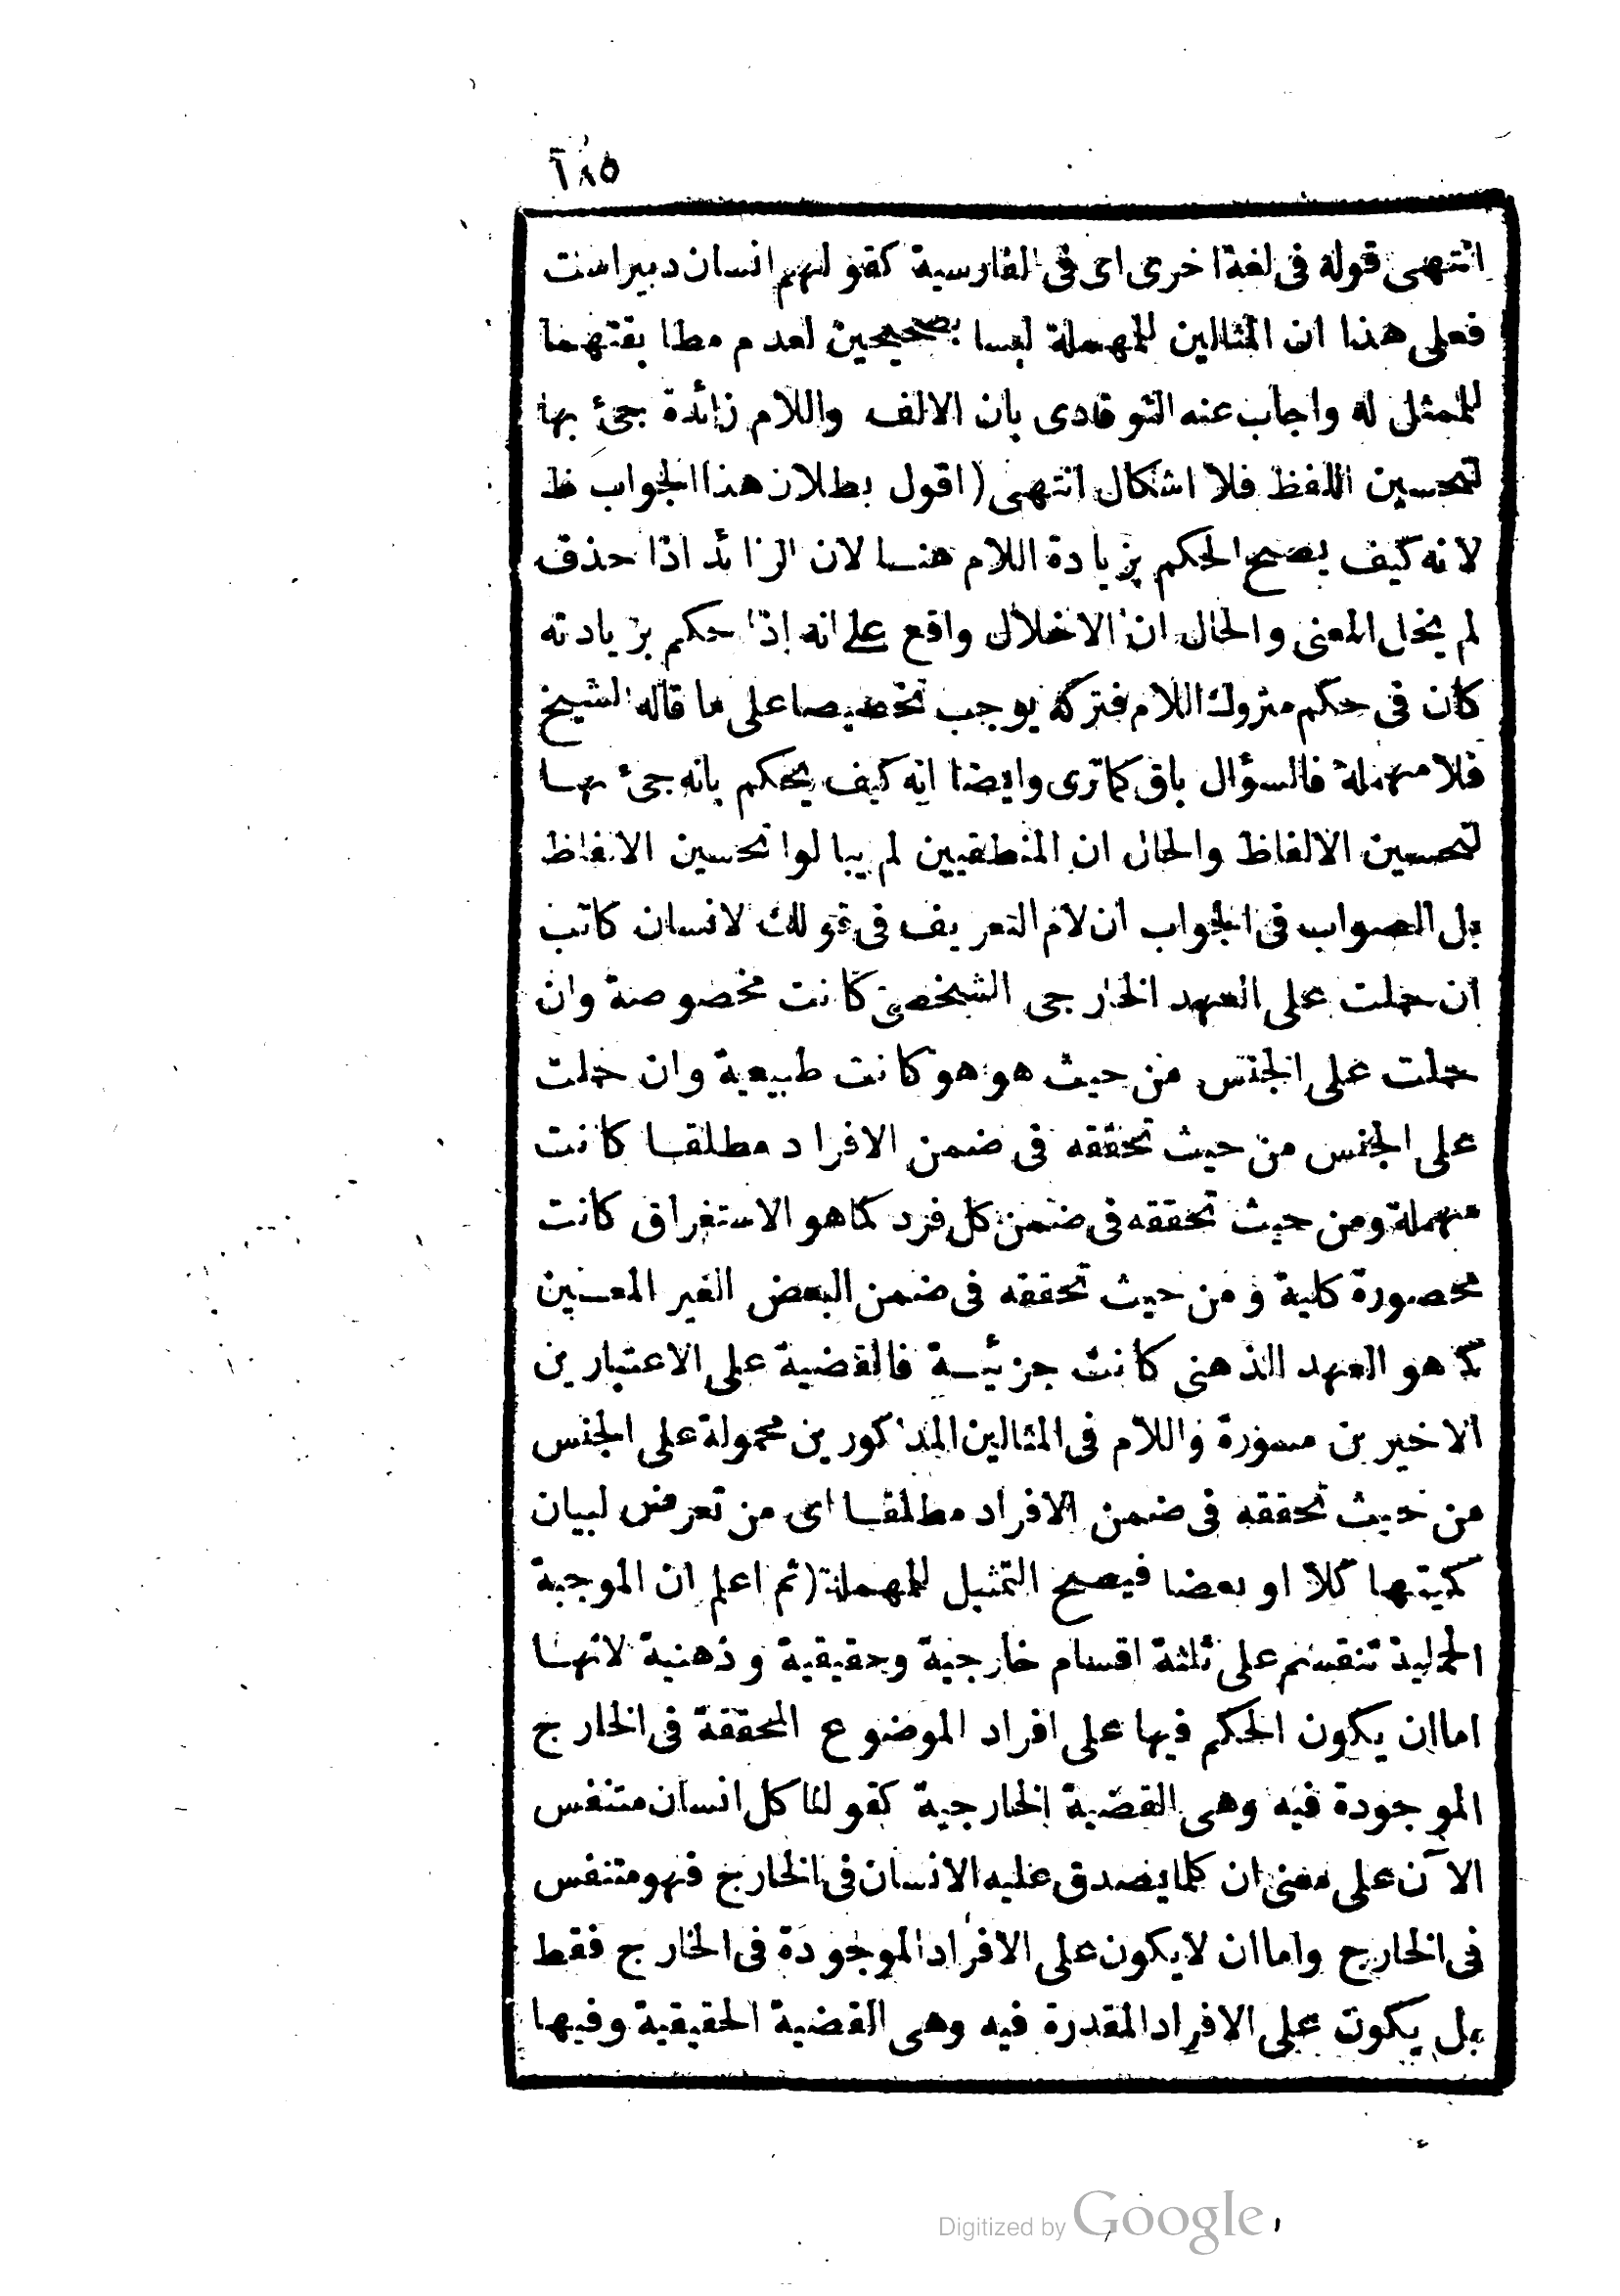 ١٨٥
انتهى قوله فى لغة اخرى اى فى الفارسية كقولهم انسان دبيراست
فعلى هذا ان المثالين للمهملة ليسا بصحيحين لعدم مطابقتهما
للممثل له واجاب عنه التوقادى بان الالف واللام زائدة جئ بها
لتحسين اللفظ فلا اشكال انتهى (اقول بطلان هذا الجواب ظ
لانه كيف يصح الحكم بزيادة اللام هنا لان الزائد اذا حذف
لم يخل المعنى والحال ان الاخلال واقع على انه اذا حكم بزيادته
كان فى حكم متروك اللام فتركه يوجب تخصيصا على ما قاله الشيخ
فلا مهملة فالسؤال باق كما ترى وايضا انه كيف يحكم بانه جئ بها
لتحسين الالفاظ والحال ان المنطقيين لم يبالوا تحسين الالفاظ
بل الصواب فى الجواب ان لام التعريف فى قولك لانسان كاتب
ان حملت على العهد الخارجى الشخصى كانت مخصوصة وان
حملت على الجنس من حيث هو هو كانت طبيعية وان حملت
على الجنس من حيث تحققه فى ضمن الافراد مطلقا كانت
مهملة ومن حيث تحققه فى ضمن كل فرد كما هو الاستغراق كانت
محصورة كلية ومن حيث تحققه فى ضمن البعض الغير المعين
كما هو العهد الذهنى كانت جزئية فالقضية على الاعتبارين
الاخيرين مسورة واللام فى المثالين المذكورين محمولة على الجنس
من حيث تحققه فى ضمن الافراد مطلقا اى من تعرض لبيان
كميتها كلا او بعضا فيصح التمثيل للمهملة (ثم اعلم ان الموجبة
الحملية تنقسم على ثلثة اقسام خارجية وحقيقية وذهنية لانها
اما ان يكون الحكم فيها على افراد الموضوع المحققة فى الخارج
الموجودة فيه وهى القضية الخارجية كقولنا كل انسان متنفس
الآن على معنى ان كلما يصدق عليه الانسان فى الخارج فهو متنفس
فى الخارج واما ان لا يكون على الافراد الموجودة فى الخارج فقط
بل يكون على الافراد المقدرة فيه وهى القضية الحقيقية وفيها
Digitized by Google